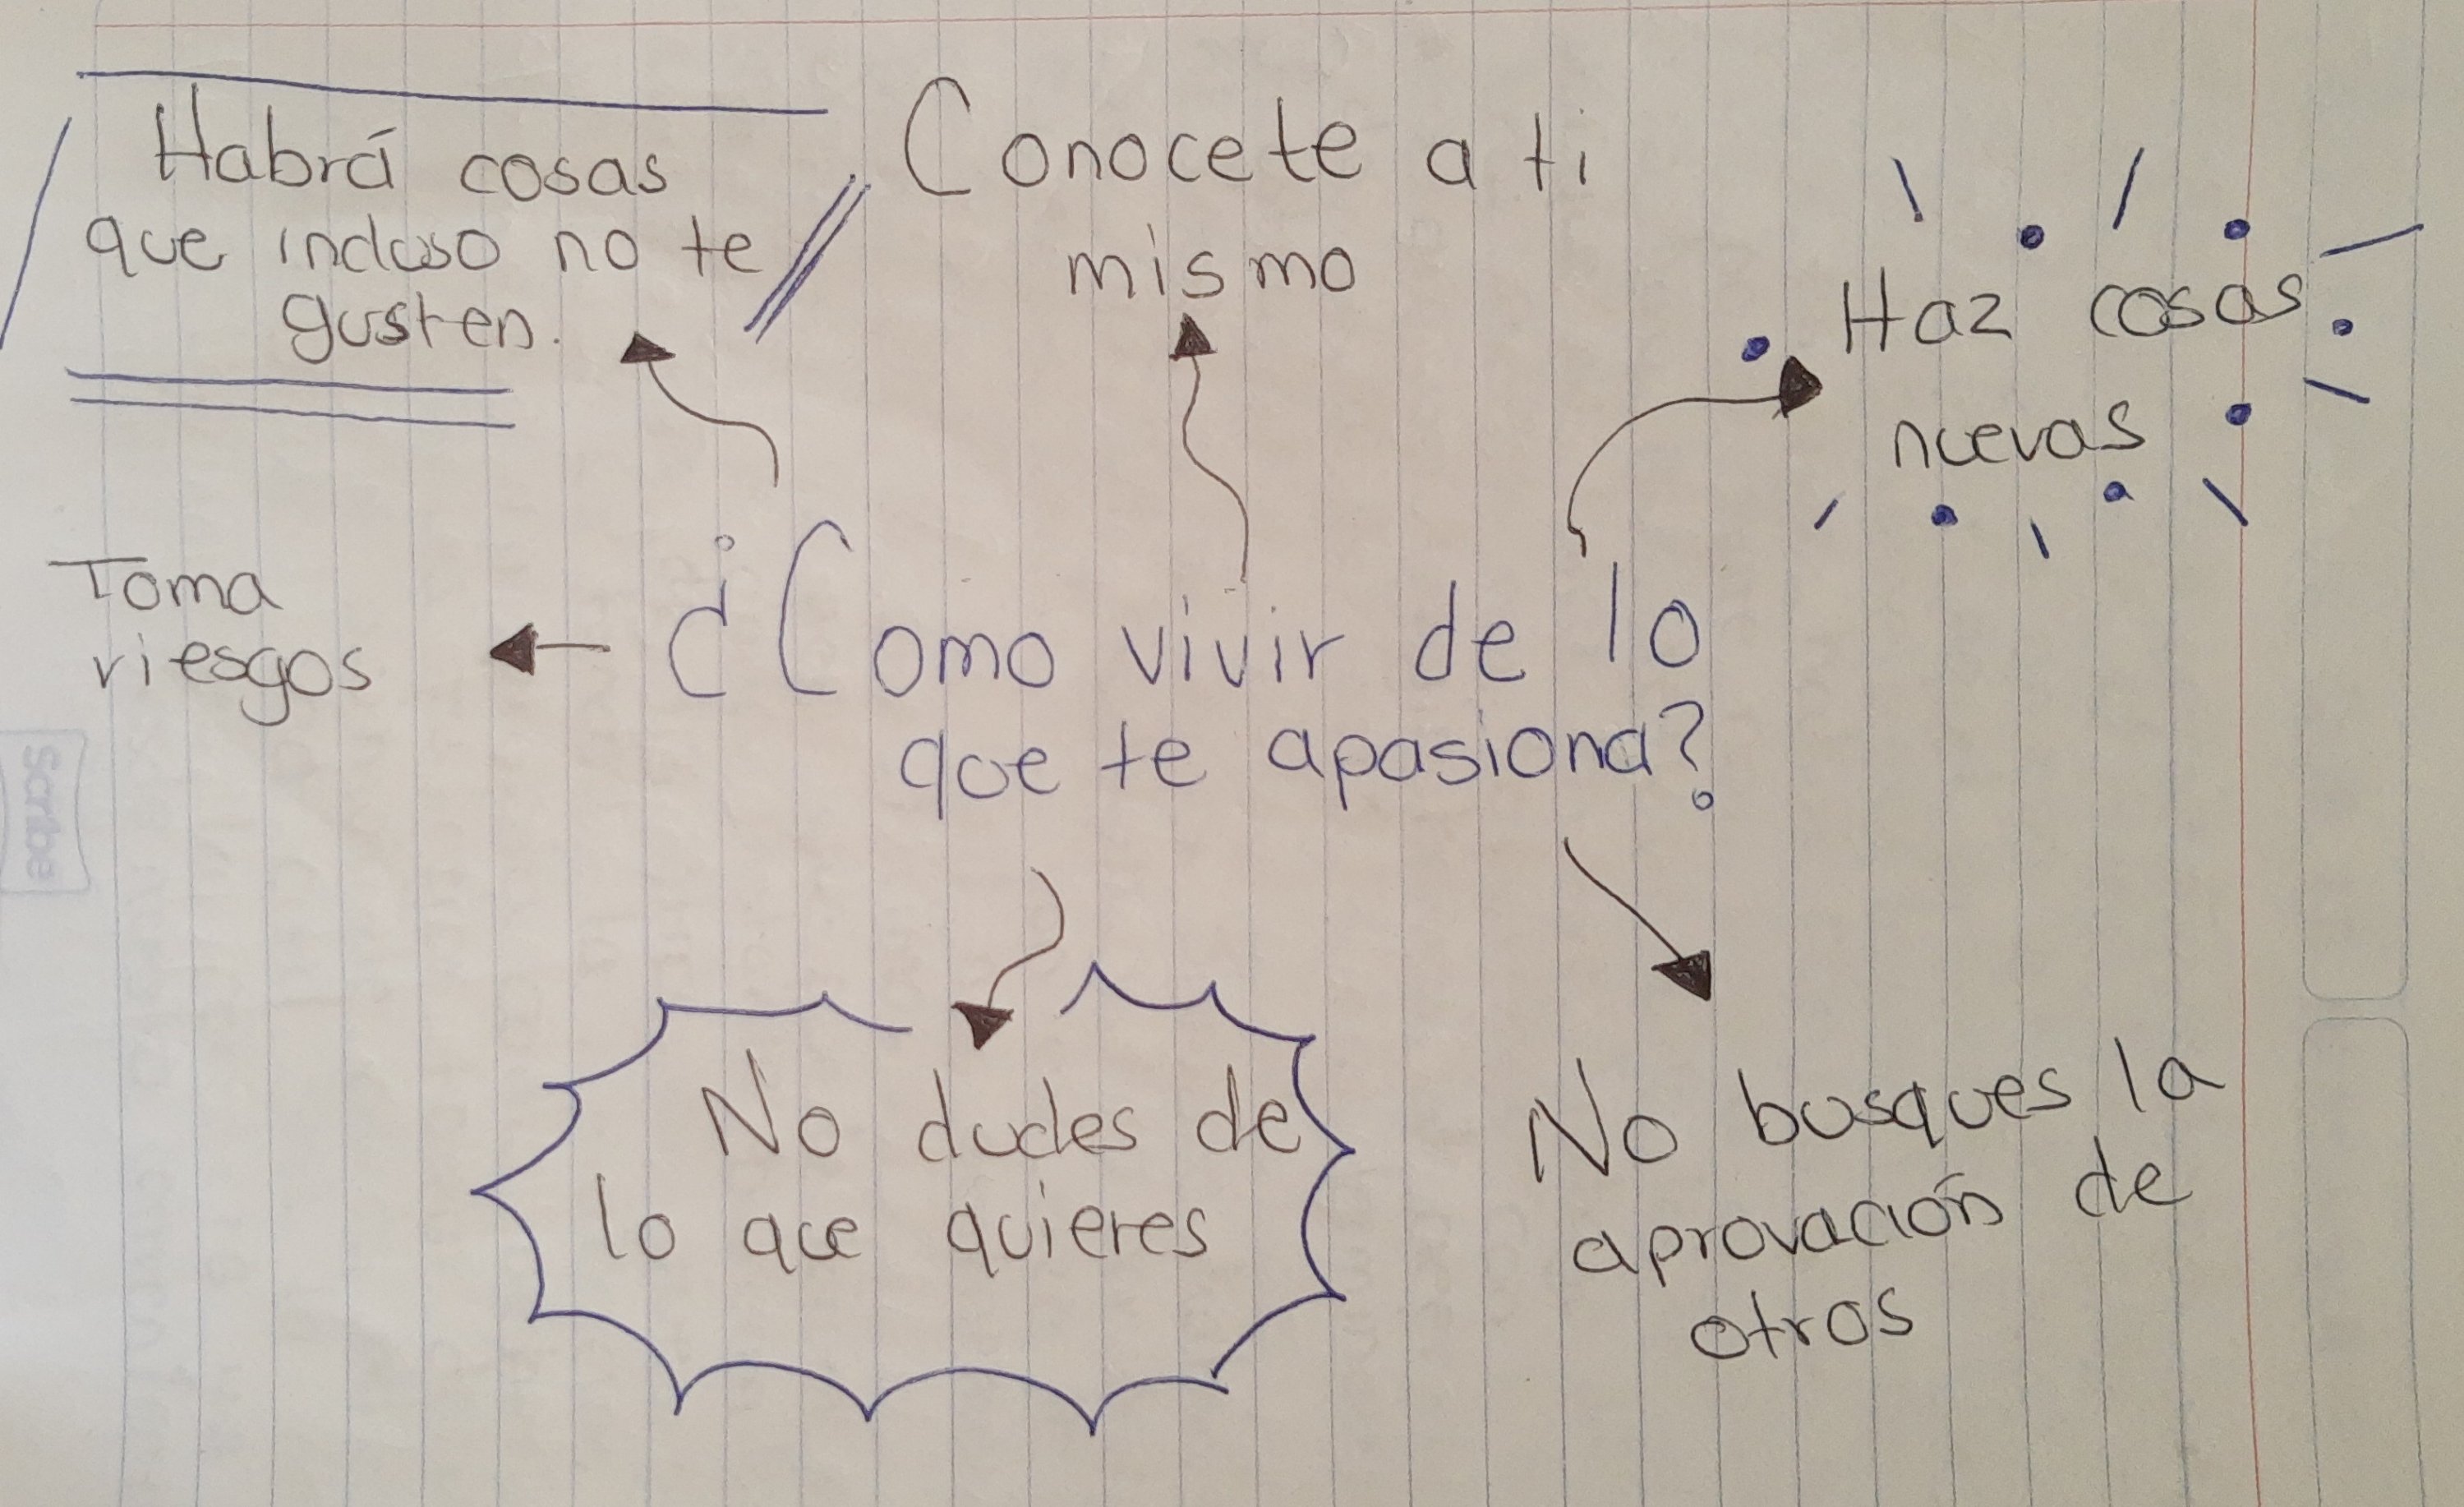 Habrá cosas
que incluso no te
gusten.
Conocete a ti
mismo
Haz cosas
nuevas
Toma
riesgos
¿Como vivir de lo
que te apasiona?
No dudes de
lo que quieres
No busques la
aprovación de
otros
Scribe